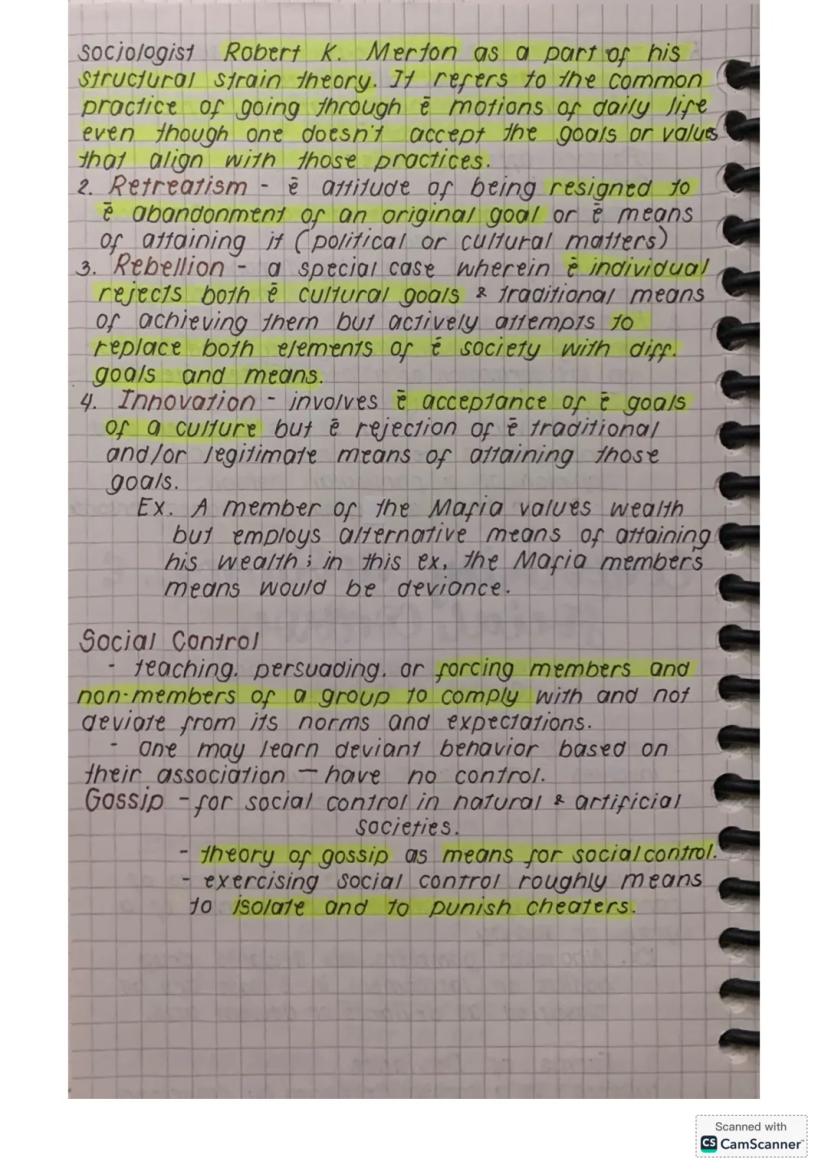 sociologist Robert K. Merton as a part of his
structural strain theory. It refers to the common
practice of going through ē motions of daily life
even though one doesn't accept the goals or values
that align with those practices.
2. Retreatism - ē attitude of being resigned to
ē abandonment of an original goal or ē means
of attaining it (political or cultural matters)
3. Rebellion - a special case wherein ē individual
rejects both ē cultural goals & traditional means
of achieving them but actively attempts to
replace both elements of ē society with diff.
goals and means.
4. Innovation - involves ē acceptance of ē goals
of a culture but ē rejection of ē traditional
and/or legitimate means of attaining those
goals.
Ex. A member of the Mafia values wealth
but employs alternative means of attaining
his wealth; in this ex, the Mafia member's
means would be deviance.
Social Control
- teaching, persuading, or forcing members and
non-members of a group to comply with and not
deviate from its norms and expectations.
- one may learn deviant behavior based on
their association — have no control.
Gossip - for social control in natural & artificial
societies.
- theory of gossip as means for social control.
- exercising social control roughly means
to isolate and to punish cheaters.
Scanned with
CS CamScanner